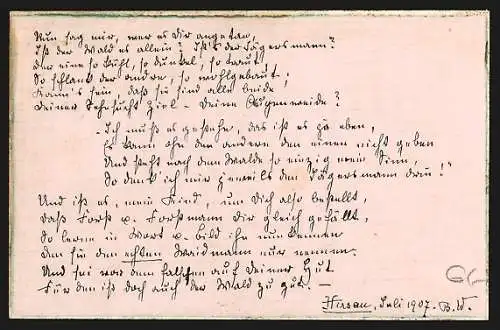 Nun sag mir, wer es dir angetan,
Ist der Wald es allein? Ist's der Jägersmann?
Der eine so kühl, so dunkel, so traut
So schlank der andre, so wohlgebaut;
Kann's sein, daß sie sind alle beide,
Deiner Sehnsucht Ziel – deine Augenweide?
„Ich muß es gestehn, das ist es ja eben,
Es kann ohn den andern den einen nicht geben
Und steht nach dem Walde so einzig mein Sinn,
So denk' ich mir jeweils den Jägersmann drin!"
Und ist es, mein Kind, um dich also bestellt,
Daß Forst u. Forstmann dir gleich gefällt,
So lerne in Wort u. Bild ihn nun kennen
Den sie den echten Waidmann nur nennen.
Und sei vor dem falschen auf deiner Hut
Für den ist doch auch der Wald zu gut. –
Hirsau, Juli 1907. B.W.